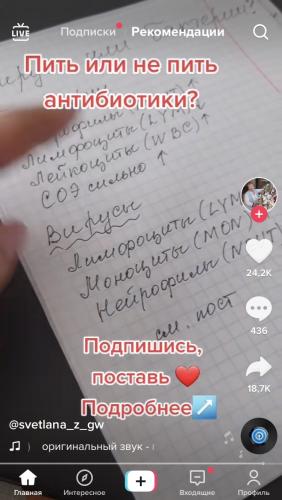 LIVE
Подписки Рекомендации
или
Пить или не пить
антибиотики?
Лимфоциты (LYM)
Лейкоциты (WBC) ↑
СОЭ сильно ↑
Вирусы
Лимфоциты (LYM
Моноциты (MON)
Нейрофилы (NEUT)
см. пост
24,2K
436
18,7K
Подпишись,
поставь ❤️
Подробнее↗️
@svetlana_z_gw
оригинальный звук -
Главная Интересное Входящие Профиль